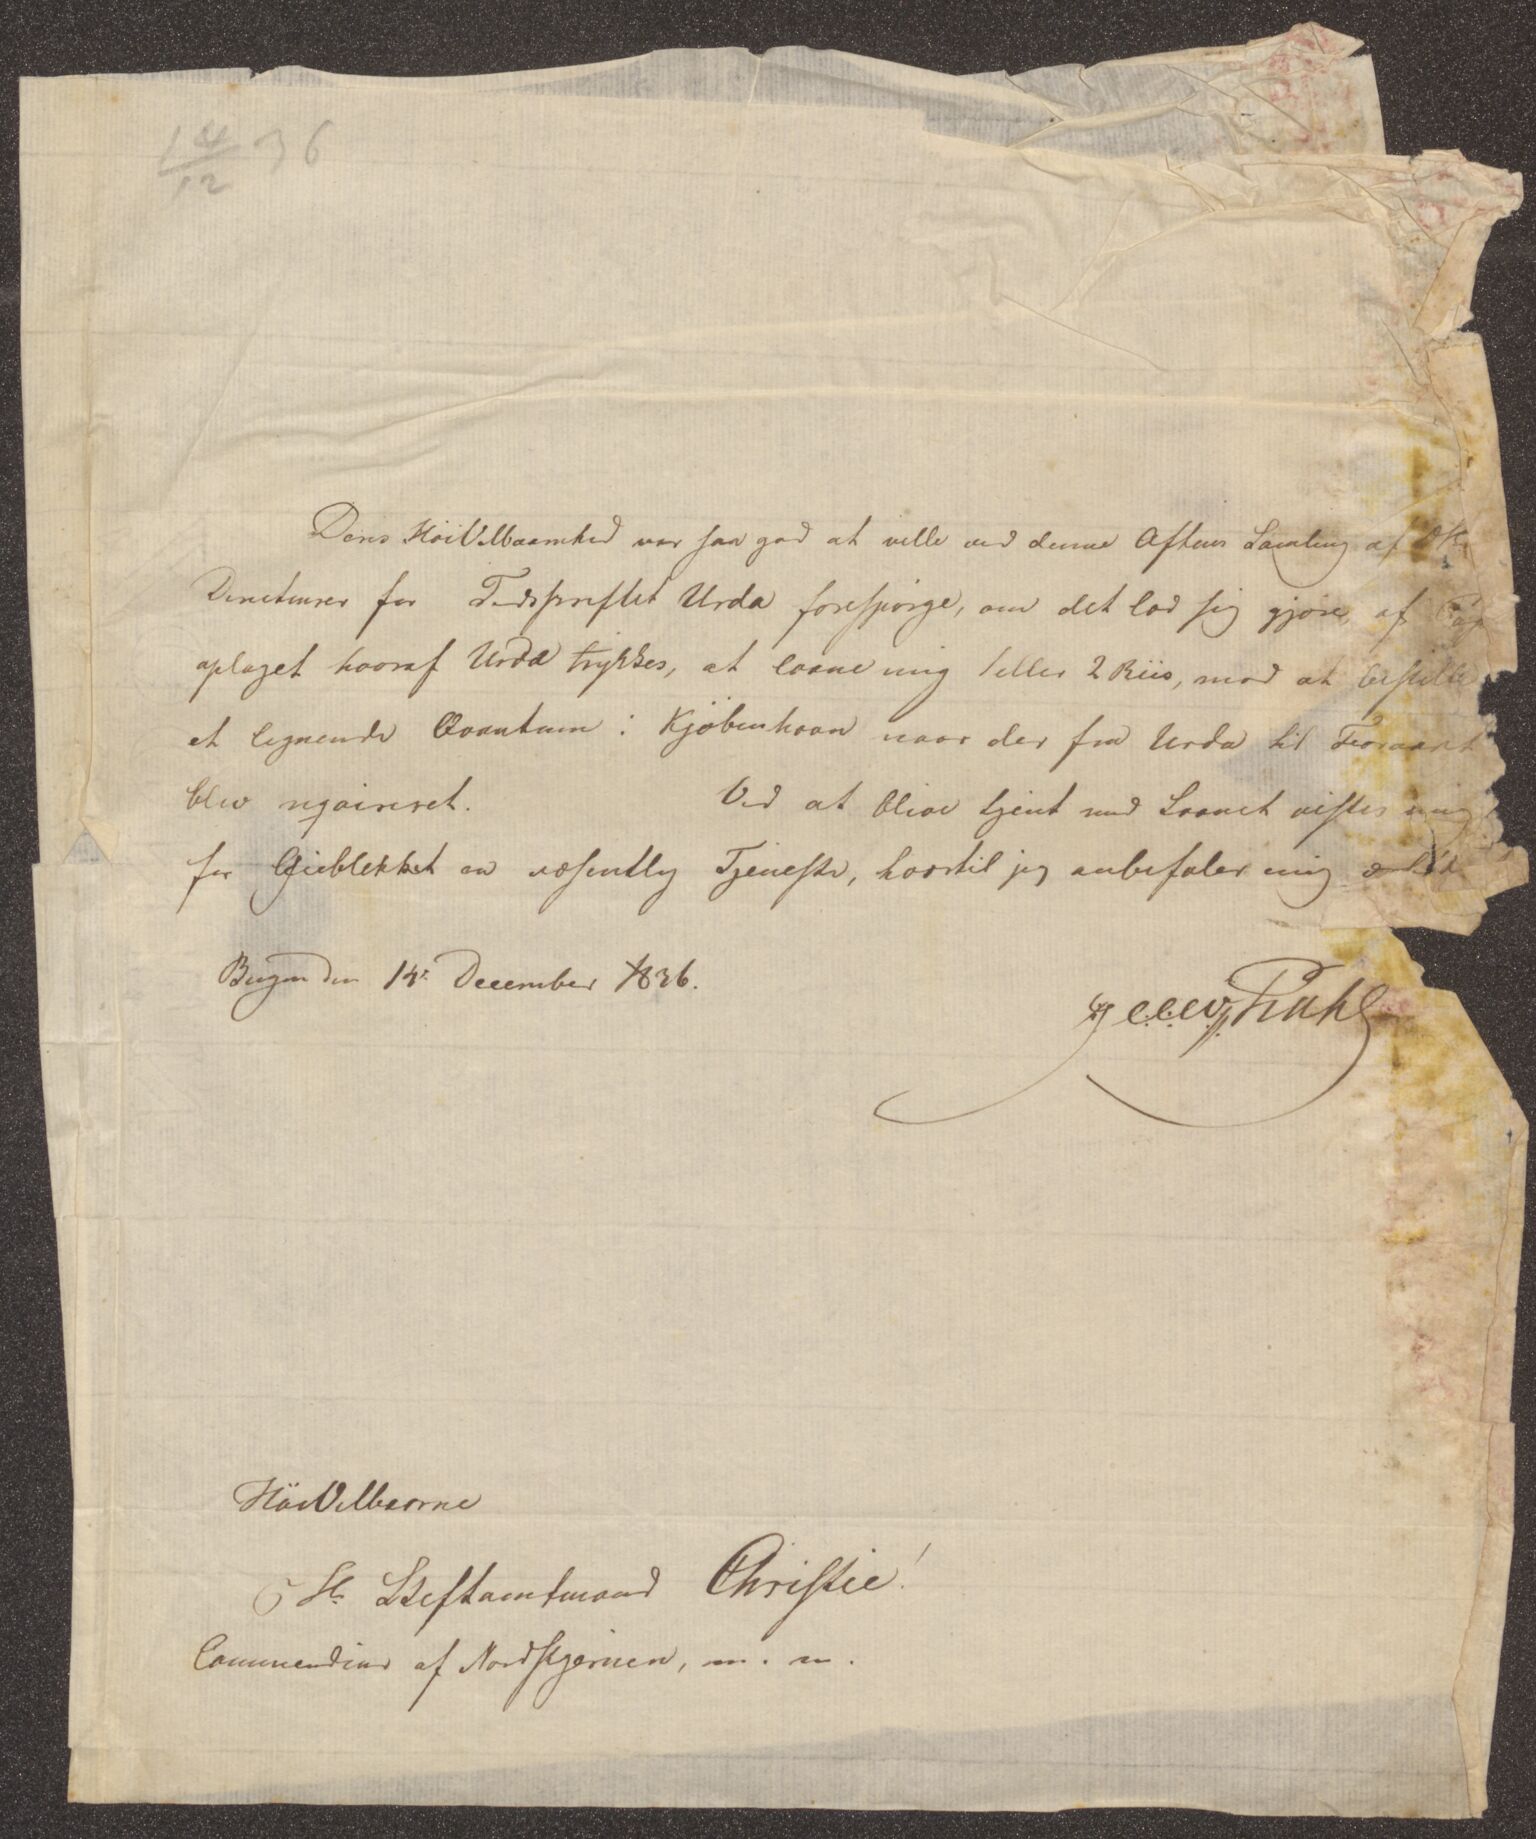 14/12 36
Deres HöiVelbaarnhed var saa god at ville ved denne Aftens Samling af
Directeurer for Tidsskriftet Urda forespörge, om det lod sig gjöre, af
oplaget hvoraf Urda trykkes, at laane mig 1 eller 2 Riis, mod at bestille
et lignende Qvantum i Kjöbenhavn naar der fra Urda til Foraaret
blev reqvireret. Ved at blive tjent med Laanet vistes mig
for Öieblikket en væsentlig Tjeneste, hvortil jeg anbefaler mig
Bergen den 14de December 1836.
Dahl
HöiVelbaarne
Hr. Stiftamtmand Christie!
Commandeur af Nordstjernen, m. m.